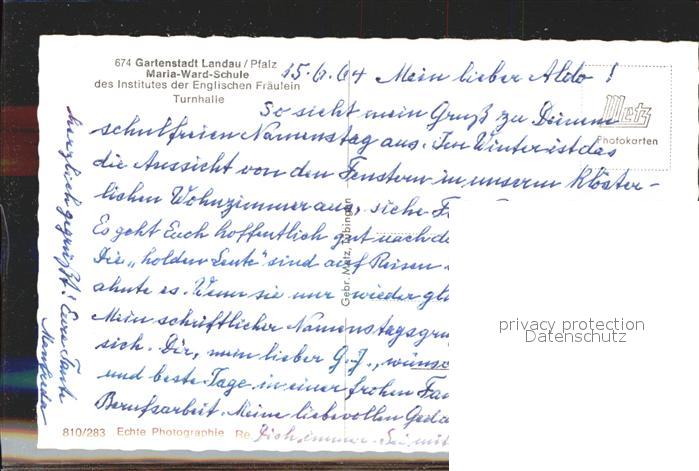 674 Gartenstadt Landau / Pfalz
Maria-Ward-Schule
des Institutes der Englischen Fräulein
Turnhalle
15.6.64 Mein lieber Aldo!
Metz
Photokarten
So sieht mein Gruß zu Deinem
schulfreien Namenstag aus. Im Winter ist das
die Aussicht von den Fenstern in unserm klöster-
lichen Wohnzimmer aus, siehe
Es geht Euch hoffentlich gut nach
Die „holden Leute" sind auf Reisen
ahnte es. Wenn sie nur wieder
Mein schriftlicher Namenstagsgru
sich. Dir, mein lieber G.J., wünsc
und beste Tage in einer frohen
Berufsarbeit. Meine liebevollen
Dich immer. Sei mit
herzlich gegrüßt! Eure Tante
Manfreda
Gebr. Metz, Tübingen
810/283 Echte Photographie Re
privacy protection
Datenschutz